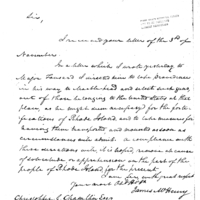 Sir,
I received your letter of the 3d of
November.
In a letter which I wrote yesterday to
Major Tousard I directed him to take Providence
in his way to and select such
as of those belonging to the United States at that
place, as he might deem necessary for the forti-
fications of Rhode Island and to take measures for
having them transported and mounted as soon as
circumstances will admit. A compliance with
these directions will, it is hoped, remove all cause
of or apprehension on the part of the
people of Rhode Island for the present.
I am Sir with great respect
your most Obd. St.
James McHenry
Christopher G. Champlin Esqr.